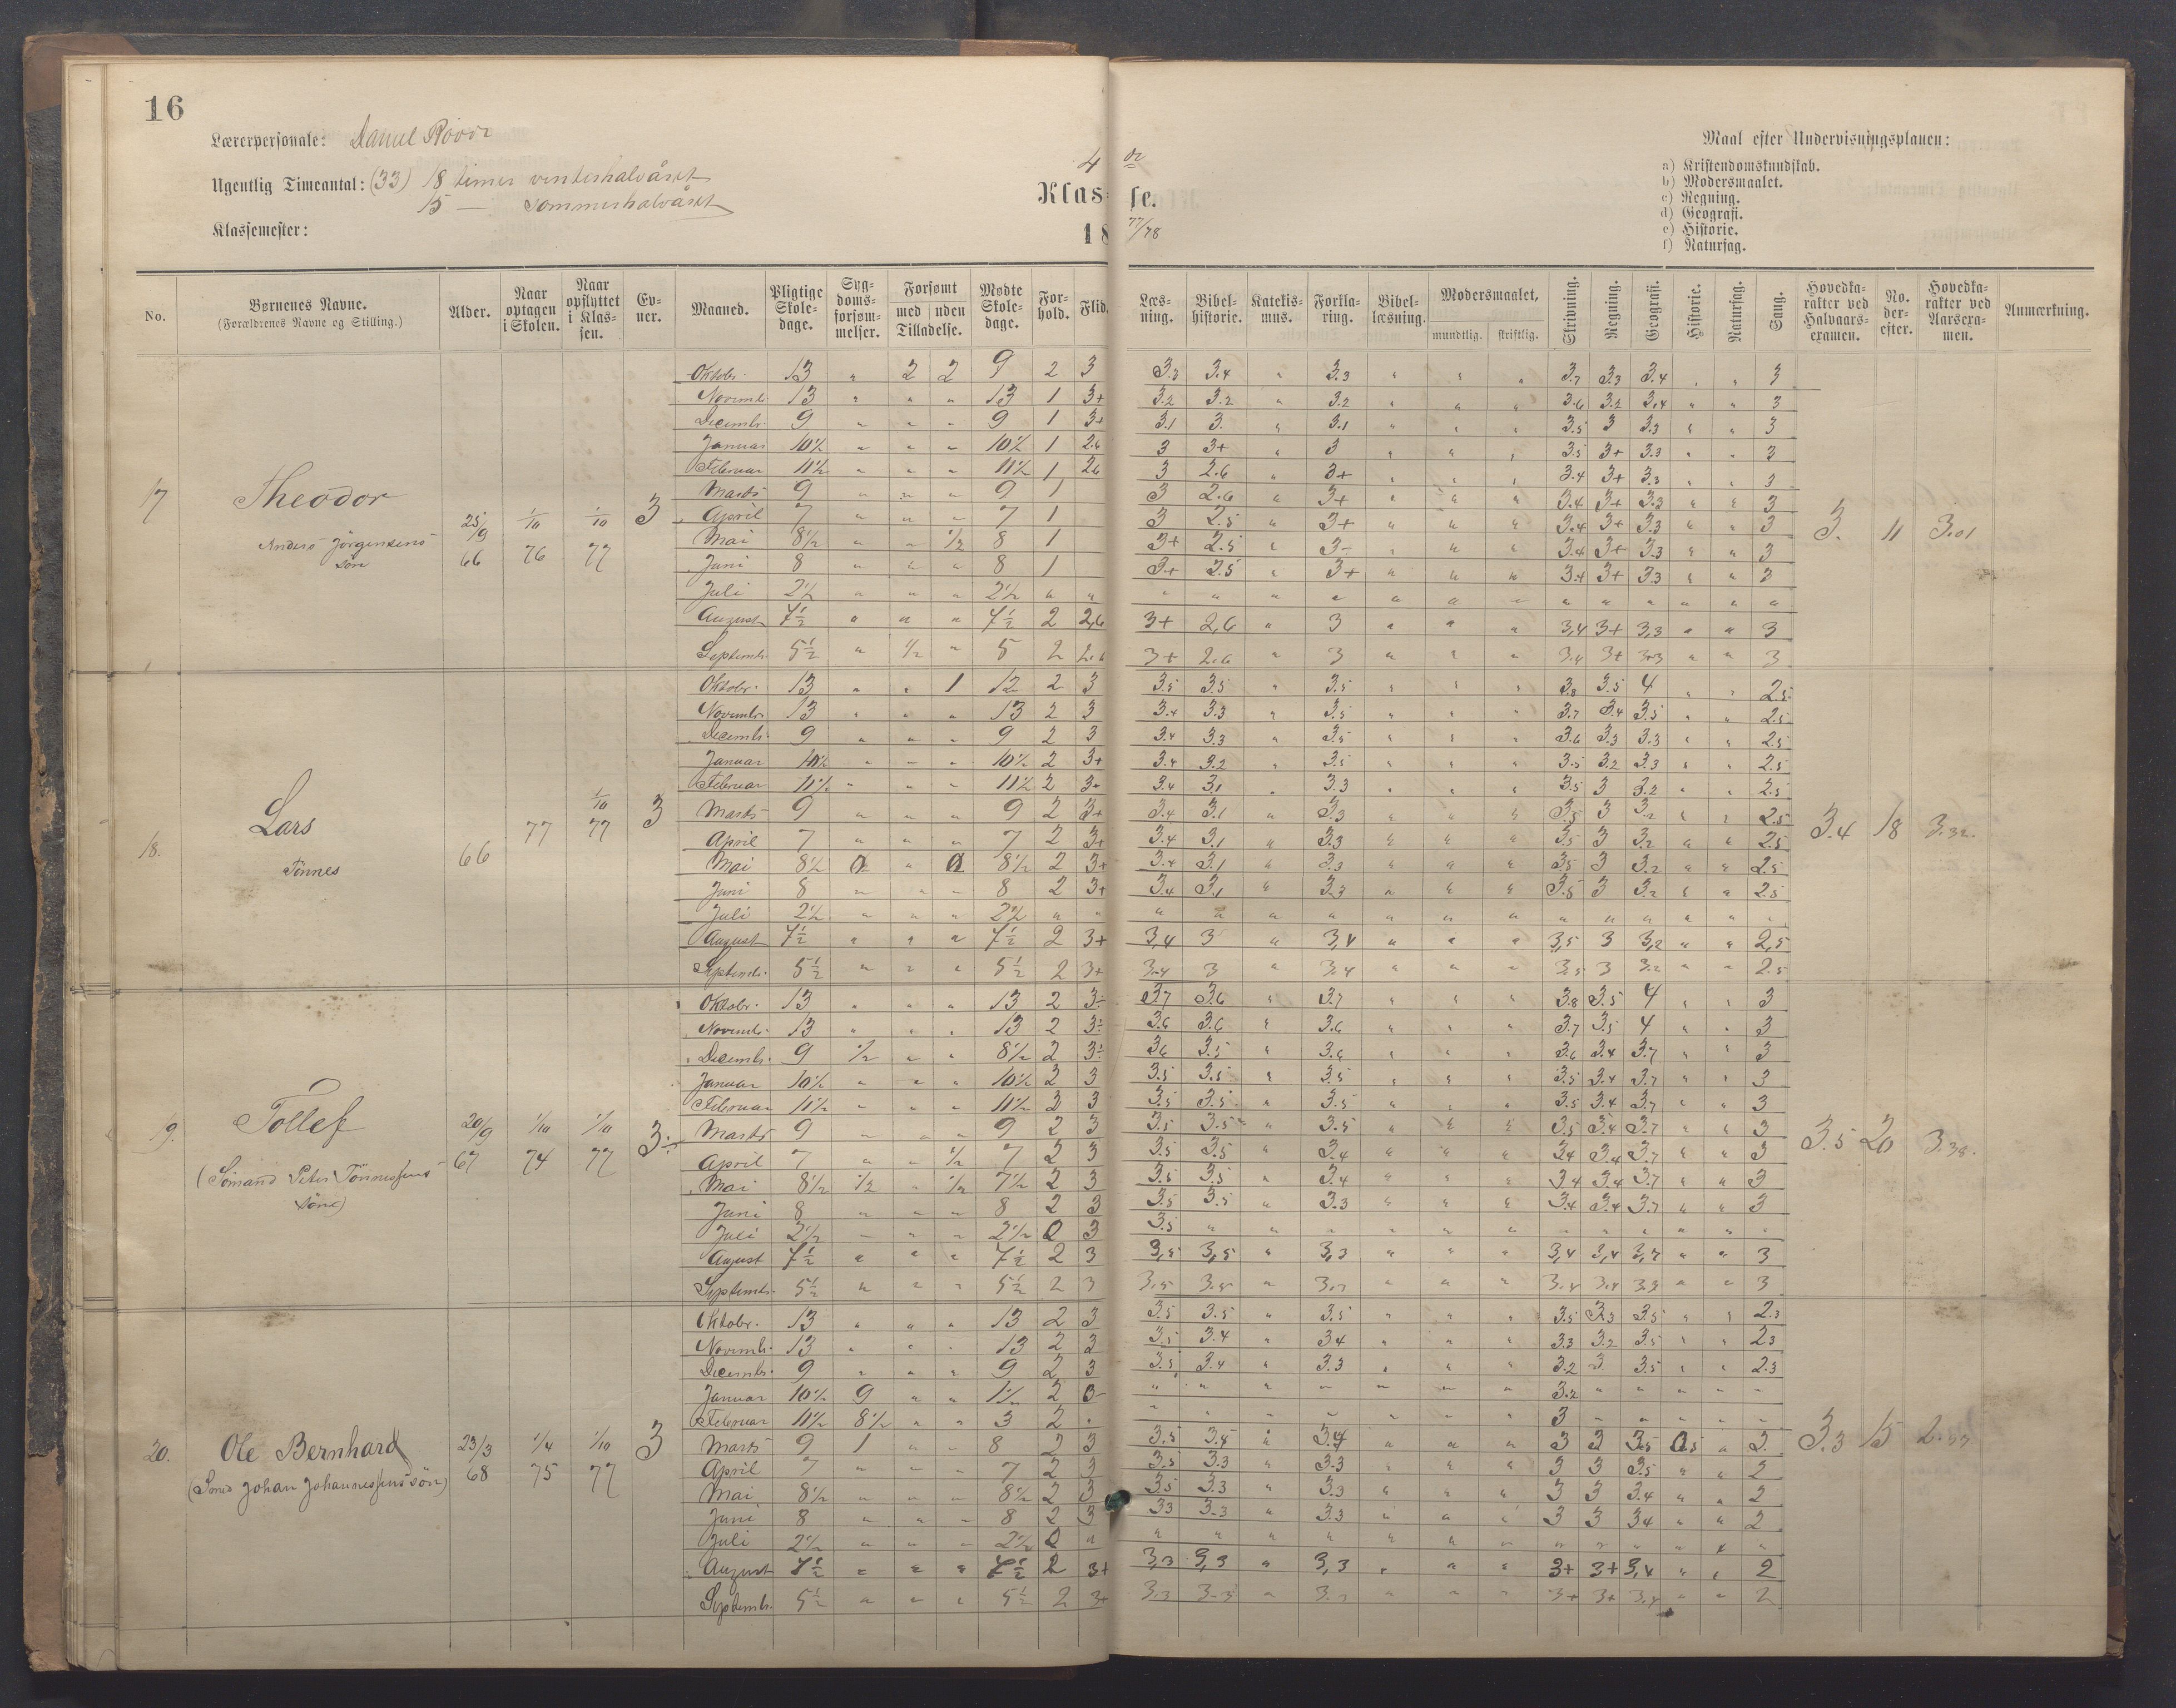 16
Lærerpersonale: Daniel
Ugentlig Timeantal: (33) 18 timer vinterhalvåret
15 — sommerhalvåret
Klassemester:
4 de
Klasse.
18 77/78
Maal efter Undervisningsplanen:
a) Kristendomskundskab.
b) Modersmaalet.
c) Regning.
d) Geografi.
e) Historie.
f) Naturfag.
No. Børnenes Navne. (Forældrenes Navne og Stilling.) Alder. Naar optagen i Skolen. Naar opflyttet i Klassen. Evner. Maaned. Pligtige Skoledage. Sygdomsforsømmelser. Forsømt med uden Tilladelse. Mødte Skoledage. Forhold. Flid. Læsning. Bibelhistorie. Katekismus. Forklaring. Bibellæsning. Modersmaalet, mundtlig. skriftlig. Skrivning. Regning. Geografi. Historie. Naturfag. Sang. Hovedkarakter ved Halvaarsexamen. No. derefter. Hovedkarakter ved Aarsexamen. Anmærkning.
17 Theodor
Anders Jörgensens
sön
25/9 66 1/10 76 1/10 77 3
Oktobr. 13 " 2 2 9 2 3 3.3 3.4 " 3.3 " " " 3.7 3.3 3.4 " " 3
Novembr. 13 " " " 13 1 3+ 3.2 3.2 " 3.2 " " " 3.6 3.2 3.4 " " 3
Decembr. 9 " " " 9 1 3+ 3.1 3. " 3.1 " " " 3.5 3 3.3 " " 3
Januar 10½ " " " 10½ 1 2.6 3 3+ " 3 " " " 3.5 3+ 3.3 " " 3
Februar 11½ " " " 11½ 1 2.6 3 2.6 " 3+ " " " 3.4 3+ 3.3 " " 3
Marts 9 " " " 9 1 3 2.6 " 3+ " " " 3.4 3+ 3.3 " " 3
April 7 " " " 7 1 3 2.5 " 3+ " " " 3.4 3+ 3.3 " " 3
Mai 8½ " " ½ 8 1 3+ 2.5 " 3- " " " 3.4 3+ 3.3 " " 3
Juni 8 " " " 8 1 3+ 2.5 " 3+ " " " 3.4 3+ 3.3 " " 3
Juli 2½ " " " 2½ " " " " " " " " " " " " " " "
August 7½ " " " 7½ 2 2,6 3+ 2,6 " 3 " " " 3,4 3+ 3,3 " " 3
Septembr. 5½ " ½ " 5 2 2.6 3+ 2.6 " 3 " " " 3.4 3+ 3.3 " " 3
3. 11 3.01
18. Lars
Tönnes
66 77 1/10 77 3
Oktobr. 13 " " 1 12 2 3 3.5 3.5 " 3.5 " " " 3.8 3.5 4 " " 2.5
Novembr. 13 " " " 13 2 3 3.4 3.3 " 3.5 " " " 3.7 3.4 3.5 " " 2.5
Decembr. 9 " " " 9 2 3 3.4 3.3 " 3.5 " " " 3.6 3.3 3.3 " " 2.5
Januar 10½ " " " 10½ 2 3+ 3.4 3.2 " 3.5 " " " 3.5 3.2 3.3 " " 2.5
Februar 11½ " " " 11½ 2 3+ 3.4 3.1 " 3.3 " " " 3.5 3 3.2 " " 2.5
Marts 9 " " " 9 2 3+ 3.4 3.1 " 3.3 " " " 3.5 3 3.2 " " 2.5
April 7 " " " 7 2 3+ 3.4 3.1 " 3.3 " " " 3.5 3 3.2 " " 2.5
Mai 8½ 0 " 0 8½ 2 3+ 3.4 3.1 " 3.3 " " " 3.5 3 3.2 " " 2.5
Juni 8 " " " 8 2 3+ 3.4 3.1 " 3.3 " " " 3.5 3 3.2 " " 2.5
Juli 2½ " " " 2½ " " " " " " " " " " " " " " "
August 7½ " " " 7½ 2 3+ 3,4 3 " 3,4 " " " 3,5 3 3,2 " " 2,5
Septembr. 5½ " " " 5½ 2 3+ 3.4 3 " 3.4 " " " 3.5 3 3.2 " " 2.5
3.4 18 3.32.
19. Tollef
(Sömand Peter Tönnessens
sön)
20/9 67 1/10 74 1/10 77 3÷
Oktobr. 13 " " " 13 2 3÷ 3.7 3.6 " 3.7 " " " 3.8 3.5 4 " " 3
Novembr. 13 " " " 13 2 3÷ 3.6 3.6 " 3.6 " " " 3.7 3.5 4 " " 3
Decembr. 9 ½ " " 8½ 2 3÷ 3.6 3.5 " 3.6 " " " 3.6 3.4 3.7 " " 3
Januar 10½ " " " 10½ 2 3 3.5 3.5 " 3.5 " " " 3.5 3.4 3.7 " " 3
Februar 11½ " " " 11½ 2 3 3.5 3.5 " 3.5 " " " 3.5 3.4 3.7 " " 3
Marts 9 " " " 9 2 3 3.5 3.5 " 3.5 " " " 3.5 3.4 3.7 " " 3
April 7 " " ½ 7 2 3 3.5 3.5 " 3.4 " " " 3.4 3.4 3.7 " " 3
Mai 8½ ½ " ½ 7½ 2 3 3.5 3.5 " 3.4 " " " 3.4 3.4 3.7 " " 3
Juni 8 " " " 8 2 3 3.5 3.5 " 3.3 " " " 3.4 3.4 3.7 " " 3
Juli 2½ " " " 2½ 0 3 3.5 " " " " " " " " " " " "
August 7½ " " " 7½ 2 3 3,5 3,5 " 3,3 " " " 3,4 3,4 3,7 " " 3
Septembr. 5½ " " " 5½ 2 3 3.5 3.5 " 3.3 " " " 3.4 3.4 " " 3
3.5 20 3.38.
20. Ole Bernhard
(Sömd Johan Johannessens sön)
23/3 68 1/4 75 1/10 77 3
Oktobr. 13 " " " 13 2 3 3.5 3.5 " 3.5 " " " 3.5 3.3 3.5 " " 2.3
Novembr. 13 " " " 13 2 3 3.5 3.4 " 3.4 " " " 3.3 3.2 3.5 " " 2.3
Decembr. 9 " " " 9 2 3 3.5 3.4 " 3.3 " " " 3.2 3 3.5 " " 2.3
Januar 10½ 9 " " 1½ 2 0 " " " " " " " 3.2 " " " " "
Februar 11½ 8½ " " 3 2 " " " " " " " " 3 " " " " "
Marts 9 1 " " 8 2 3 3.5 3.4 " 3.4 " " " 3 3 3.5 " 2
April 7 " " " 7 2 3 3.5 3.3 " 3.3 " " " 3 3 3.5 " " 2
Mai 8½ " " " 8½ 2 3 3.5 3.3 " 3.3 " " " 3 3 3.4 " " 2
Juni 8 " " " 8 2 3 3.3 3.3 " 3.3 " " " 3 3 3.4 " " 2
Juli 2½ " " " 2½ 0 " " " " " " " " " " " " " "
August 7½ " " " 7½ 2 3+ 3,3 3,3 " 3,3 " " " 3+ 3+ 3,4 " " 2
Septembr. 5½ " " " 5½ 2 3+ 3.3 3.3 " 3.3 " " " 3+ 3+ 3.4 " " 2
3.3 15